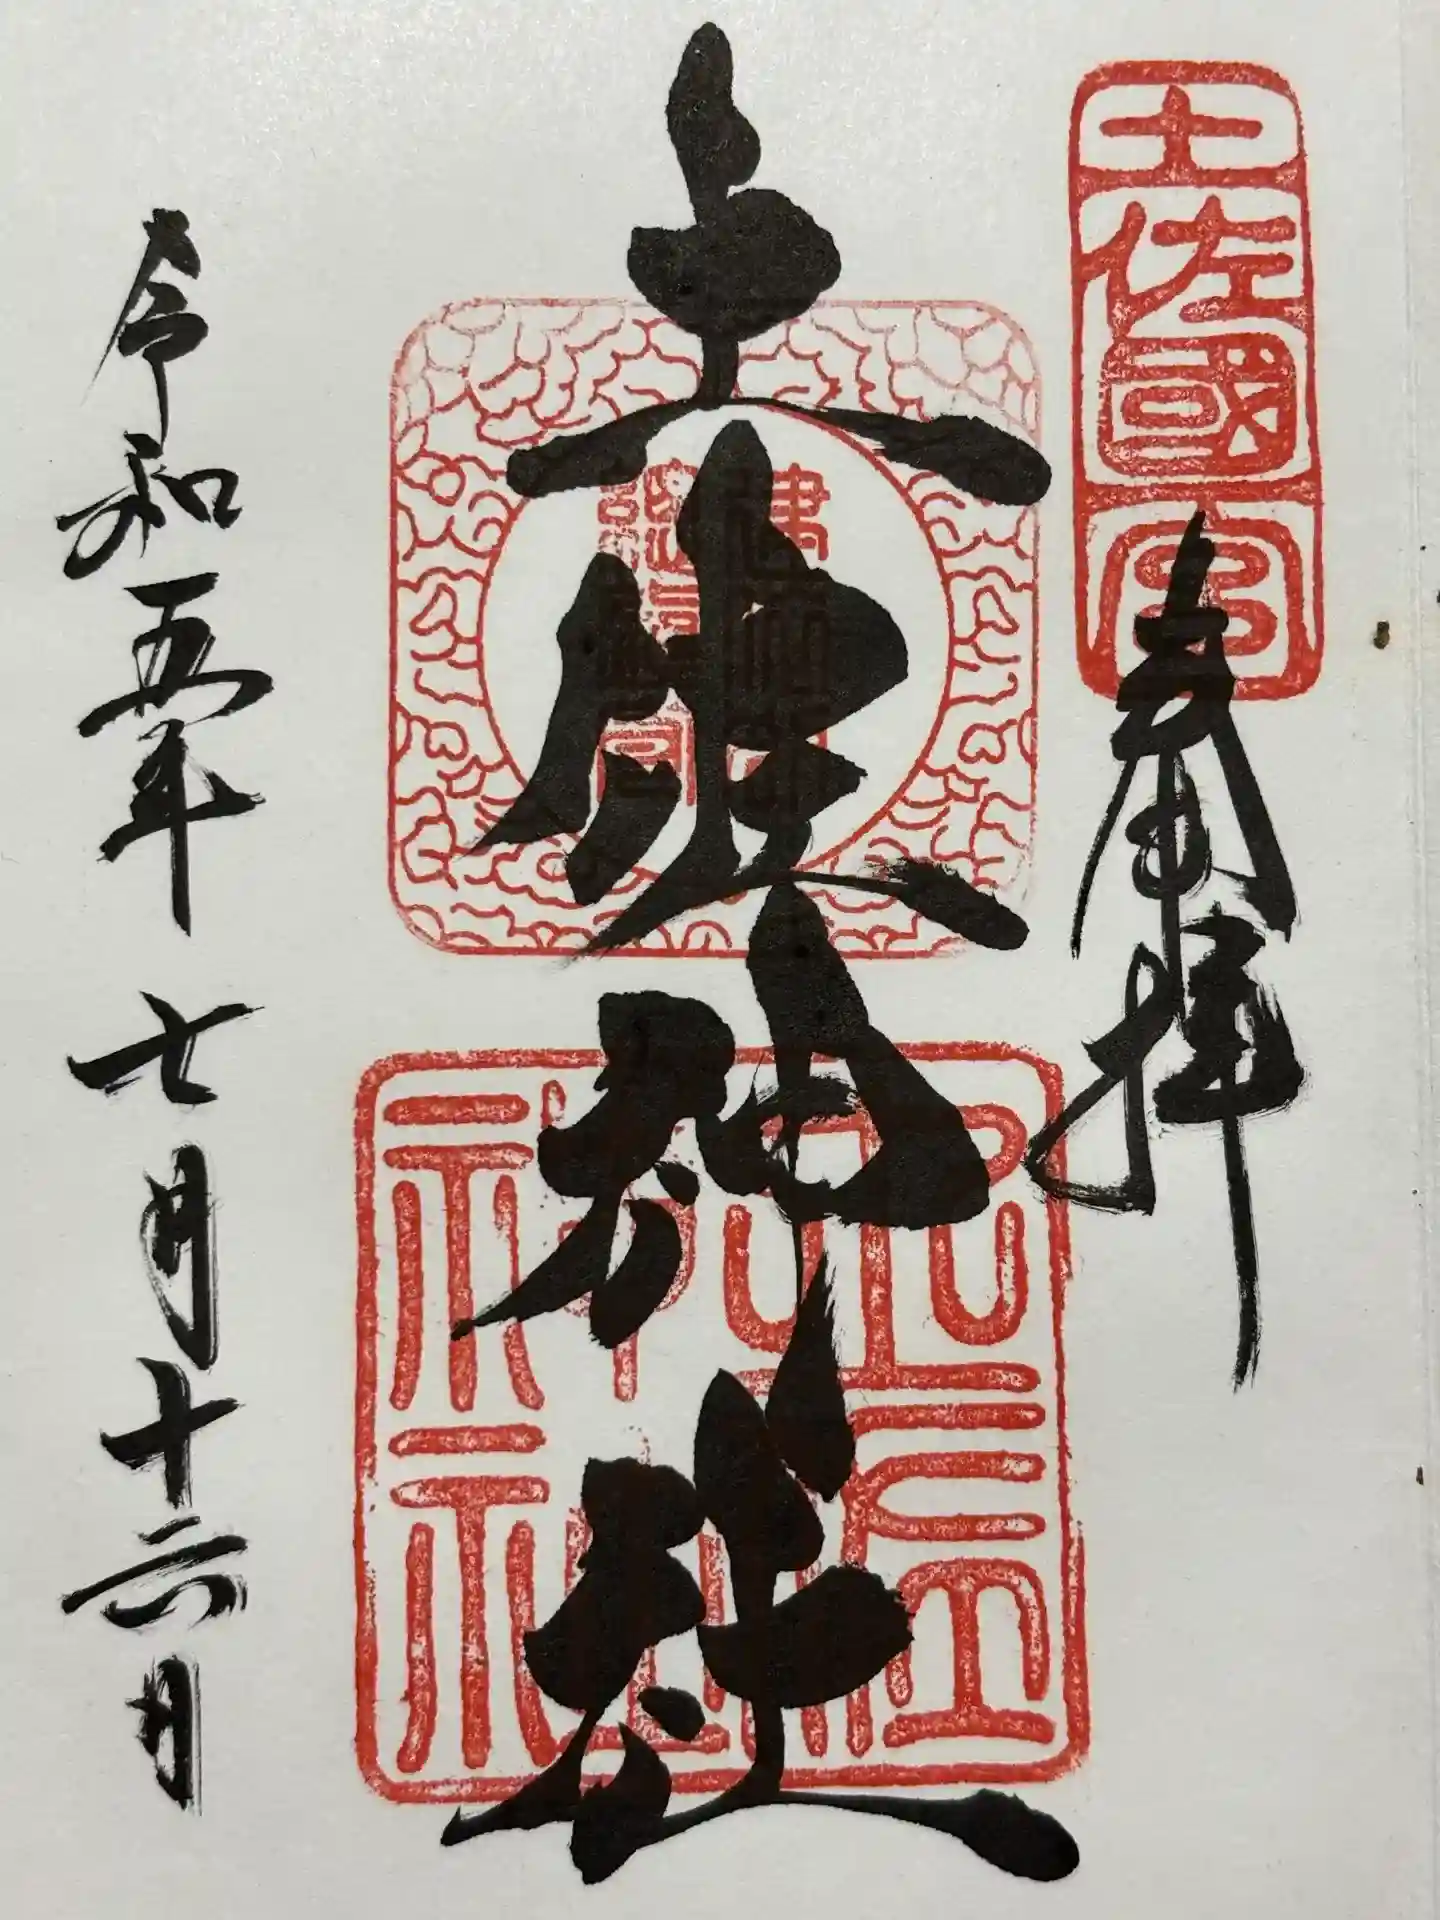 土佐國一宮
奉拝
土佐神社
令和五年 七月十六日